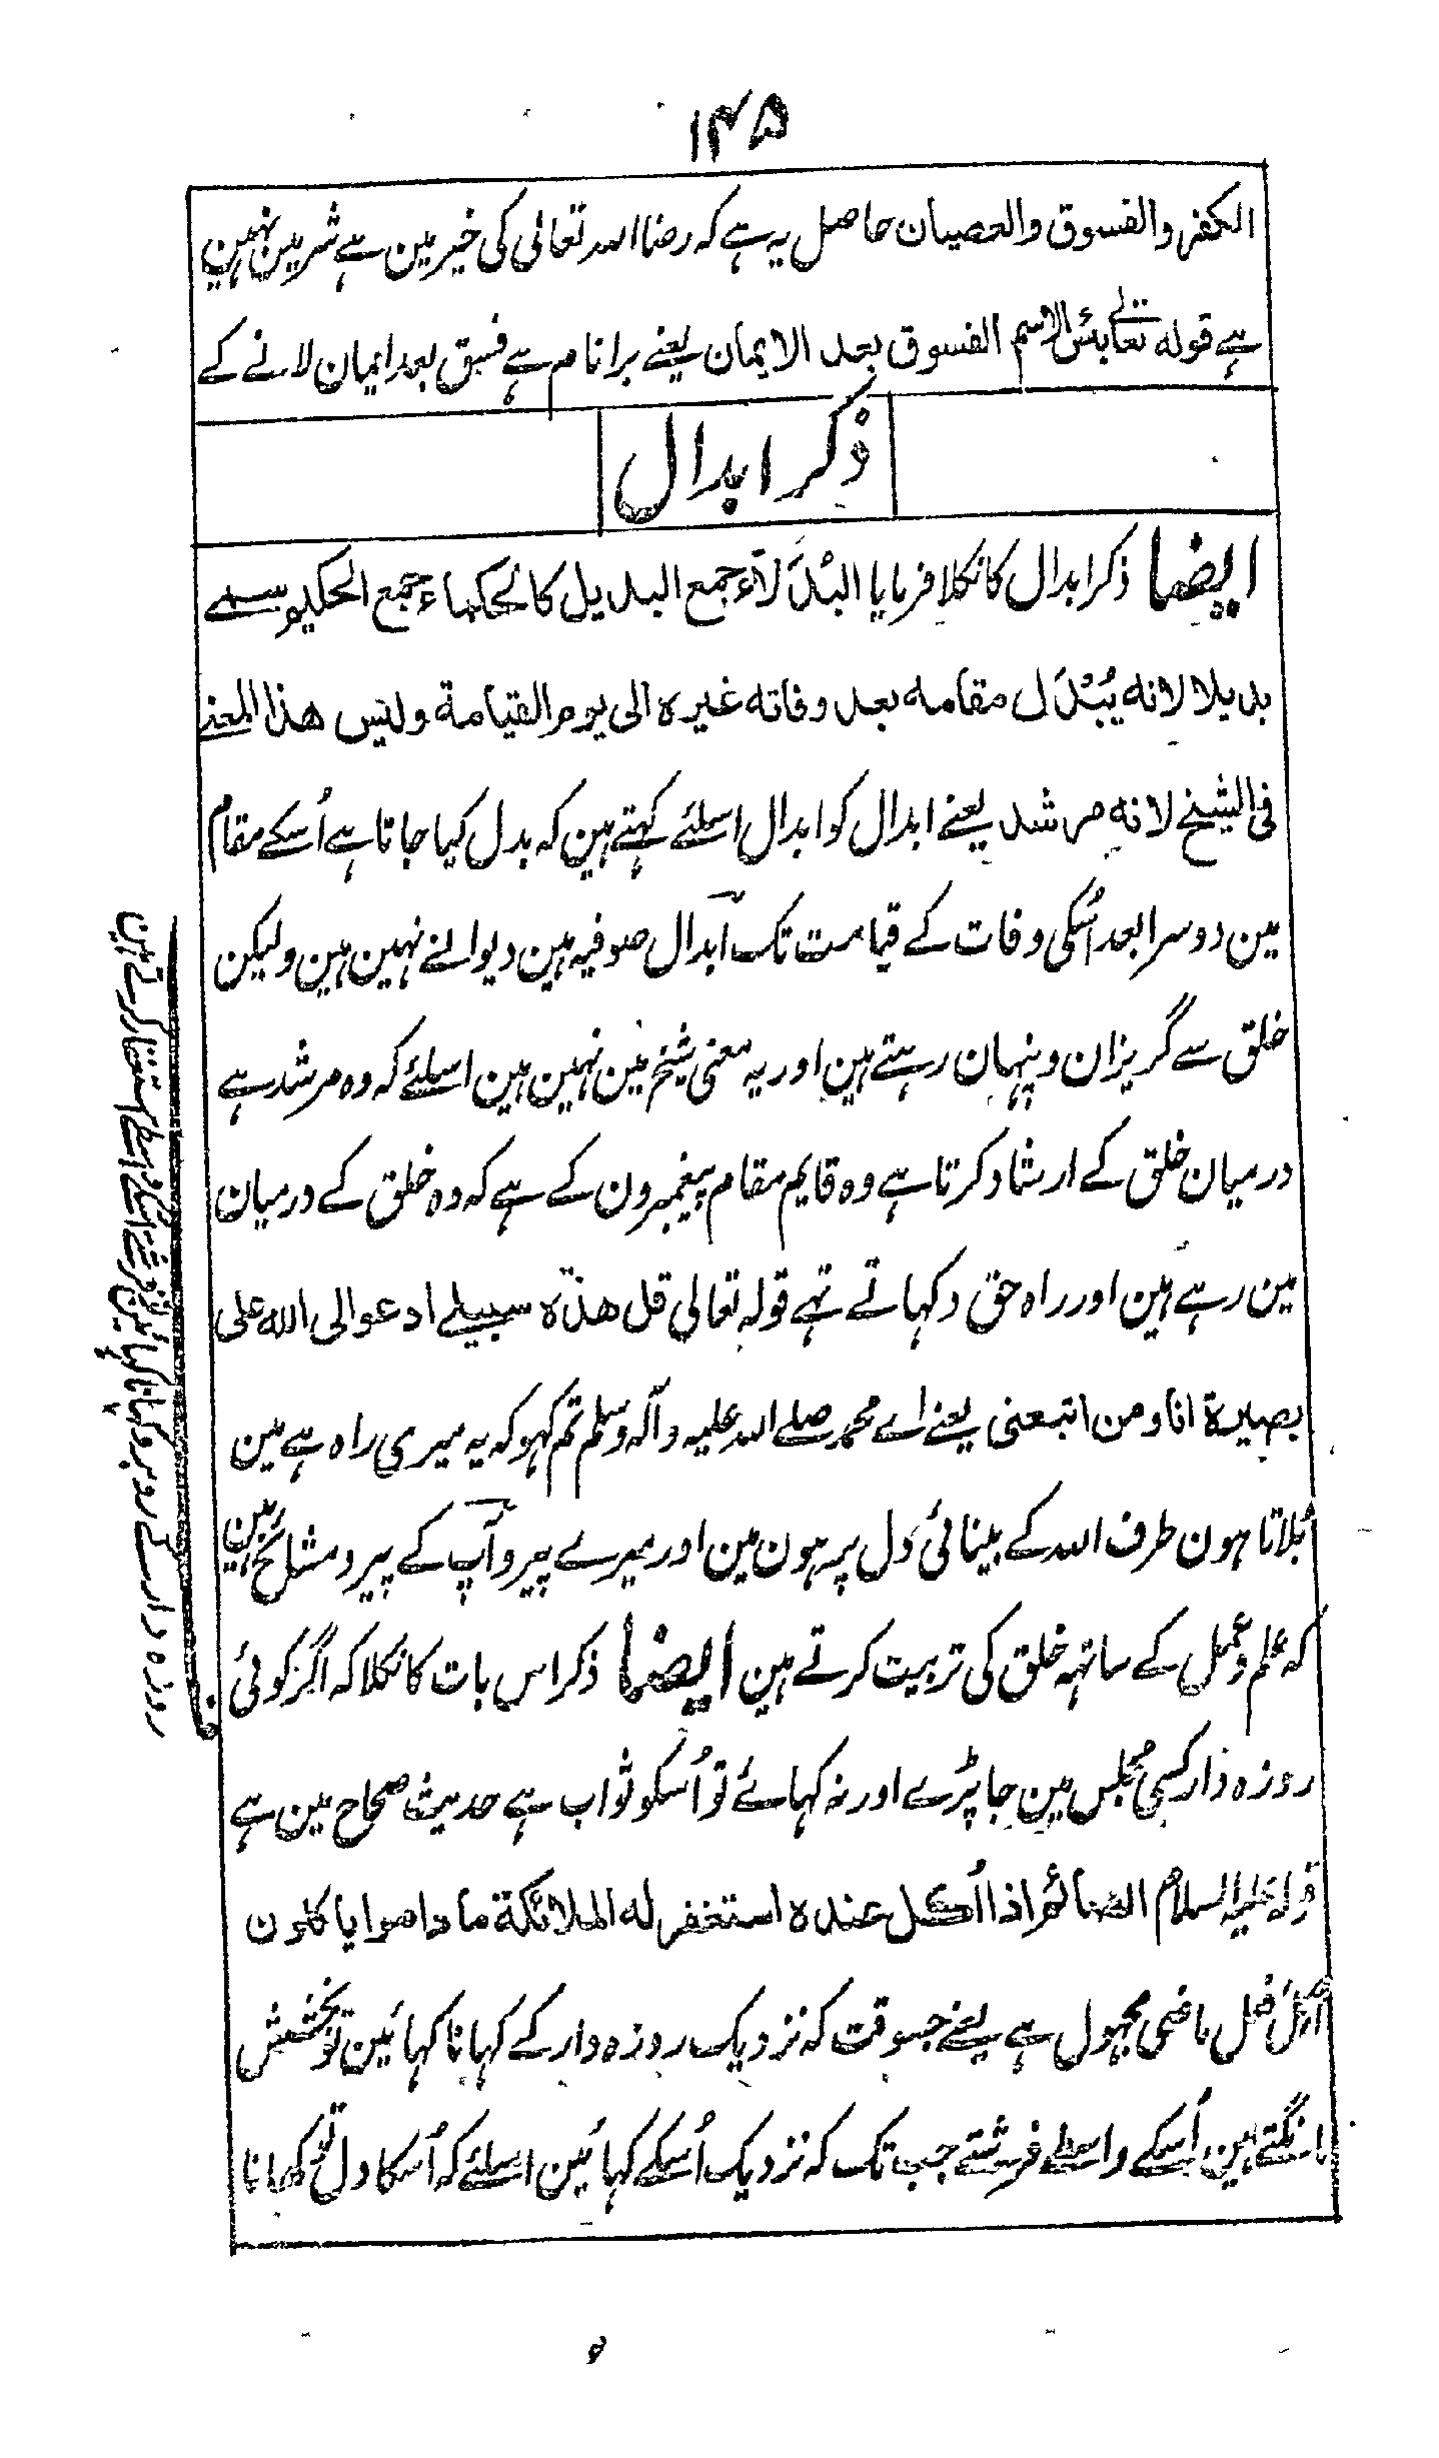 ۱۴۵
الکفر والفسوق والعصیان حاصل یہ ہے کہ رضا اللہ تعالیٰ کی خیر مین ہے شر مین نہین
ہے قوله تعالےٰ بئس الاسم الفسوق بعد الایمان یعنے برا نام ہے فسق بعد ایمان لانے کے
ذکر ابدال
ایضا ذکر ابدال کا نکلا فرمایا البُدَلآء جمع البدیل کالحکماء جمع الحکیم سمے
بدیلا لانه یُبْدَل مقامه بعد وفاته غیره الی یوم القیامة ولیس هذا المعنے
فی الشیخ لانه مرشد یعنے ابدال کو ابدال اسلئے کہتے ہین کہ بدل کیا جاتا ہے اُسکے مقام
مین دوسرا بعد اُسکی وفات کے قیامت تک ابدال صوفیہ ہین دیوانے نہین ہین ولیکن
خلق سے گریزان و پنہان رہتے ہین اور یہ معنی شیخ مین نہین ہین اسلئے کہ وہ مرشد ہے
درمیان خلق کے ارشاد کرتا ہے وہ قایم مقام پیغمبرون کے ہے کہ وہ خلق کے درمیان
مین رہے ہین اور راہ حق دکہاتے تہے قولہ تعالی قل هذه سبیلے ادعوا الی الله علی
بصیرة انا ومن اتبعنی یعنے اے محمد صلے اللہ علیہ وآلہ وسلم تم کہو کہ یہ میری راہ ہے مین
بُلاتا ہون طرف اللہ کے بینائی دل پر ہون مین اور میرے پیرو آپ کے پیرو مشائخ ہین
کہ علم و عمل کے ساتہہ خلق کی تربیت کرتے ہین ایضا ذکر اس بات کا نکلا کہ اگر کوئی
روزہ دار کسی مجلس مین جا پڑے اور نہ کہائے تو اُسکو ثواب ہے حدیث صحاح مین ہے
قوله علیه السلام الصائم اذا اُکل عنده استغفر له الملائکة ما داموا یاکلون
اُکل فعل ماضی مجہول ہے یعنے جسوقت کہ نزدیک روزہ دار کے کہانا کہائین تو بخشش
مانگتے ہین اُسکے واسطے فرشتے جب تک کہ نزدیک اُسکے کہائین اسلئے کہ اُسکا دل تو کھانا
روزہ دار کے روبرو کہانا کہانے فرشتے اسکے واسطے استغفار کرتے ہین